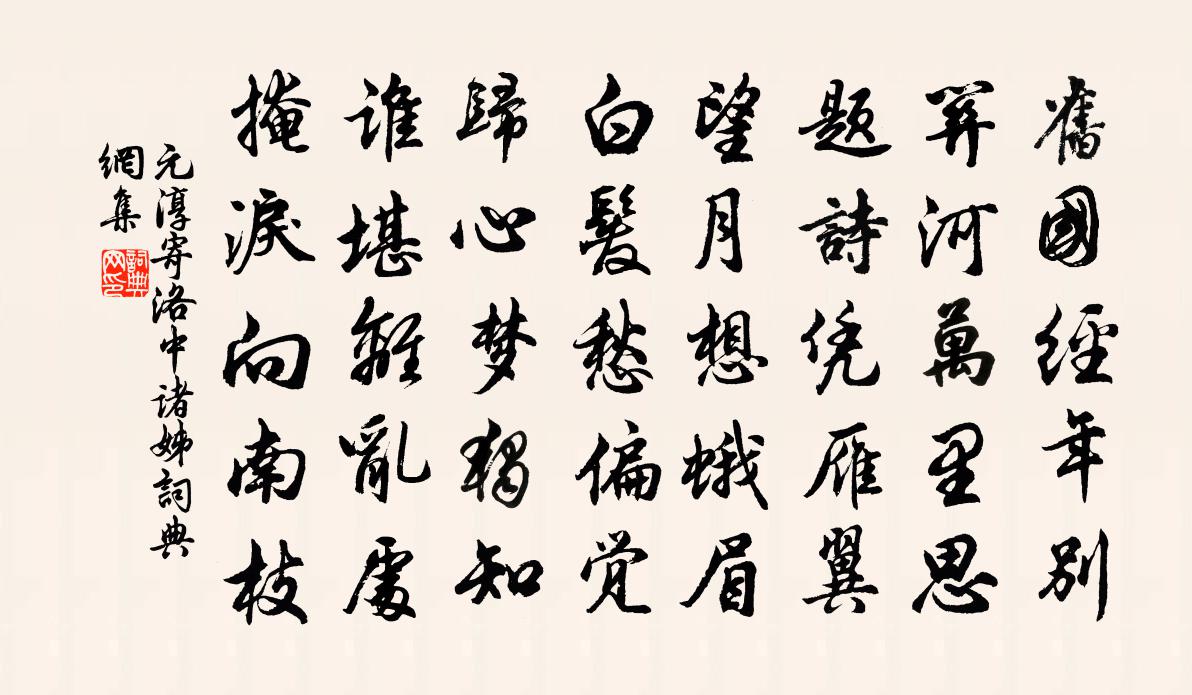 舊國經年別
關河萬里思
題詩凭雁翼
望月想蛾眉
白髮愁偏觉
歸心梦獨知
誰堪離亂處
掩淚向南枝
元淳寄洛中诸姊詞典
網集
詞典
网印